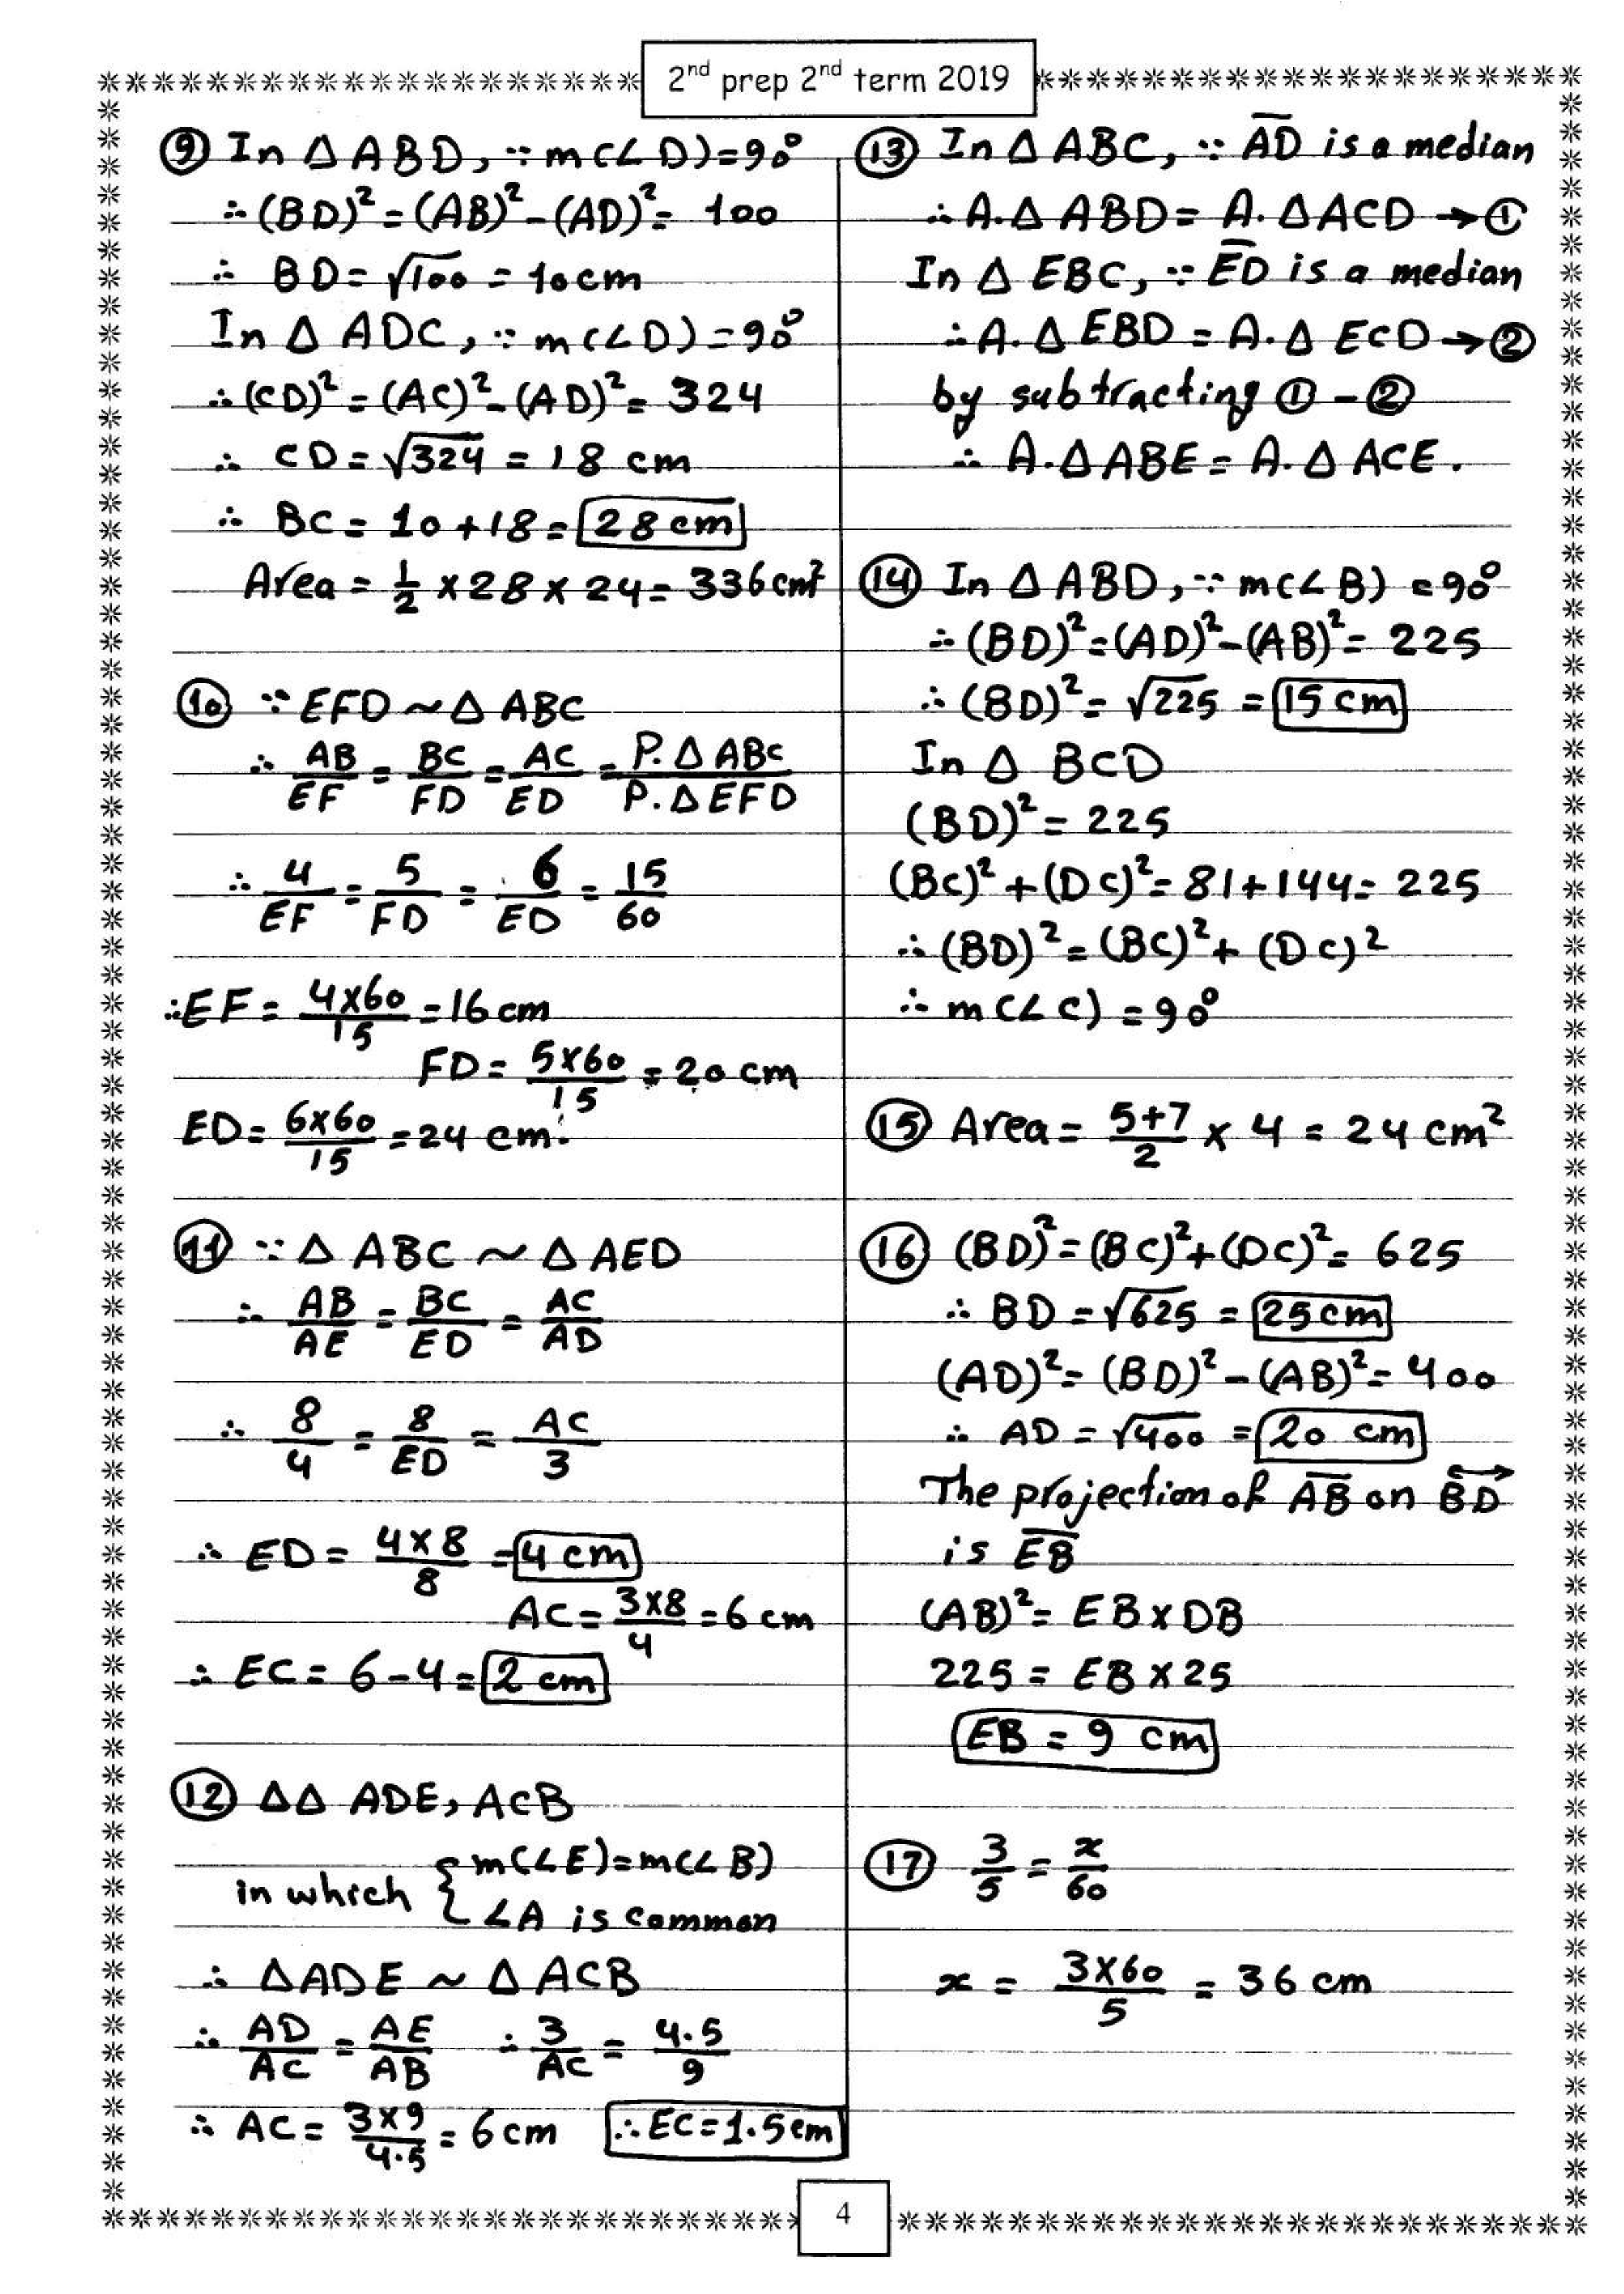 2nd prep 2nd term 2019
⑨ In Δ ABD, ∵ m(∠D)=90°
∴ (BD)² = (AB)² - (AD)² = 100
∴ BD = √100 = 10cm
In Δ ADC, ∵ m(∠D) = 90°
∴ (CD)² = (AC)² - (AD)² = 324
∴ CD = √324 = 18 cm
∴ BC = 10 + 18 = 28 cm
Area = 1/2 × 28 × 24 = 336 cm²
⑩ ∵ EFD ~ Δ ABC
∴ AB/EF = BC/FD = AC/ED = P.Δ ABC/P.Δ EFD
∴ 4/EF = 5/FD = 6/ED = 15/60
∴ EF = 4×60/15 = 16 cm
FD = 5×60/15 = 20 cm
ED = 6×60/15 = 24 cm.
⑪ ∵ Δ ABC ~ Δ AED
∴ AB/AE = BC/ED = AC/AD
∴ 8/4 = 8/ED = AC/3
∴ ED = 4×8/8 = 4 cm
AC = 3×8/4 = 6 cm
∴ EC = 6 - 4 = 2 cm
⑫ ΔΔ ADE, ACB
in which { m(∠E) = m(∠B)
∠A is common
∴ ΔADE ~ Δ ACB
∴ AD/AC = AE/AB ∴ 3/AC = 4.5/9
∴ AC = 3×9/4.5 = 6 cm ∴ EC = 1.5 cm
⑬ In Δ ABC, ∵ A̅D̅ is a median
∴ A.Δ ABD = A.Δ ACD → ①
In Δ EBC, ∵ E̅D̅ is a median
∴ A.Δ EBD = A.Δ ECD → ②
by subtracting ① - ②
∴ A.Δ ABE = A.Δ ACE.
⑭ In Δ ABD, ∵ m(∠B) = 90°
∴ (BD)² = (AD)² - (AB)² = 225
∴ (BD)² = √225 = 15 cm
In Δ BCD
(BD)² = 225
(BC)² + (DC)² = 81 + 144 = 225
∴ (BD)² = (BC)² + (DC)²
∴ m(∠C) = 90°
⑮ Area = 5+7/2 × 4 = 24 cm²
⑯ (BD)² = (BC)² + (DC)² = 625
∴ BD = √625 = 25 cm
(AD)² = (BD)² - (AB)² = 400
∴ AD = √400 = 20 cm
The projection of A̅B̅ on B⃡D
is E̅B̅
(AB)² = EB × DB
225 = EB × 25
EB = 9 cm
⑰ 3/5 = x/60
x = 3×60/5 = 36 cm
4